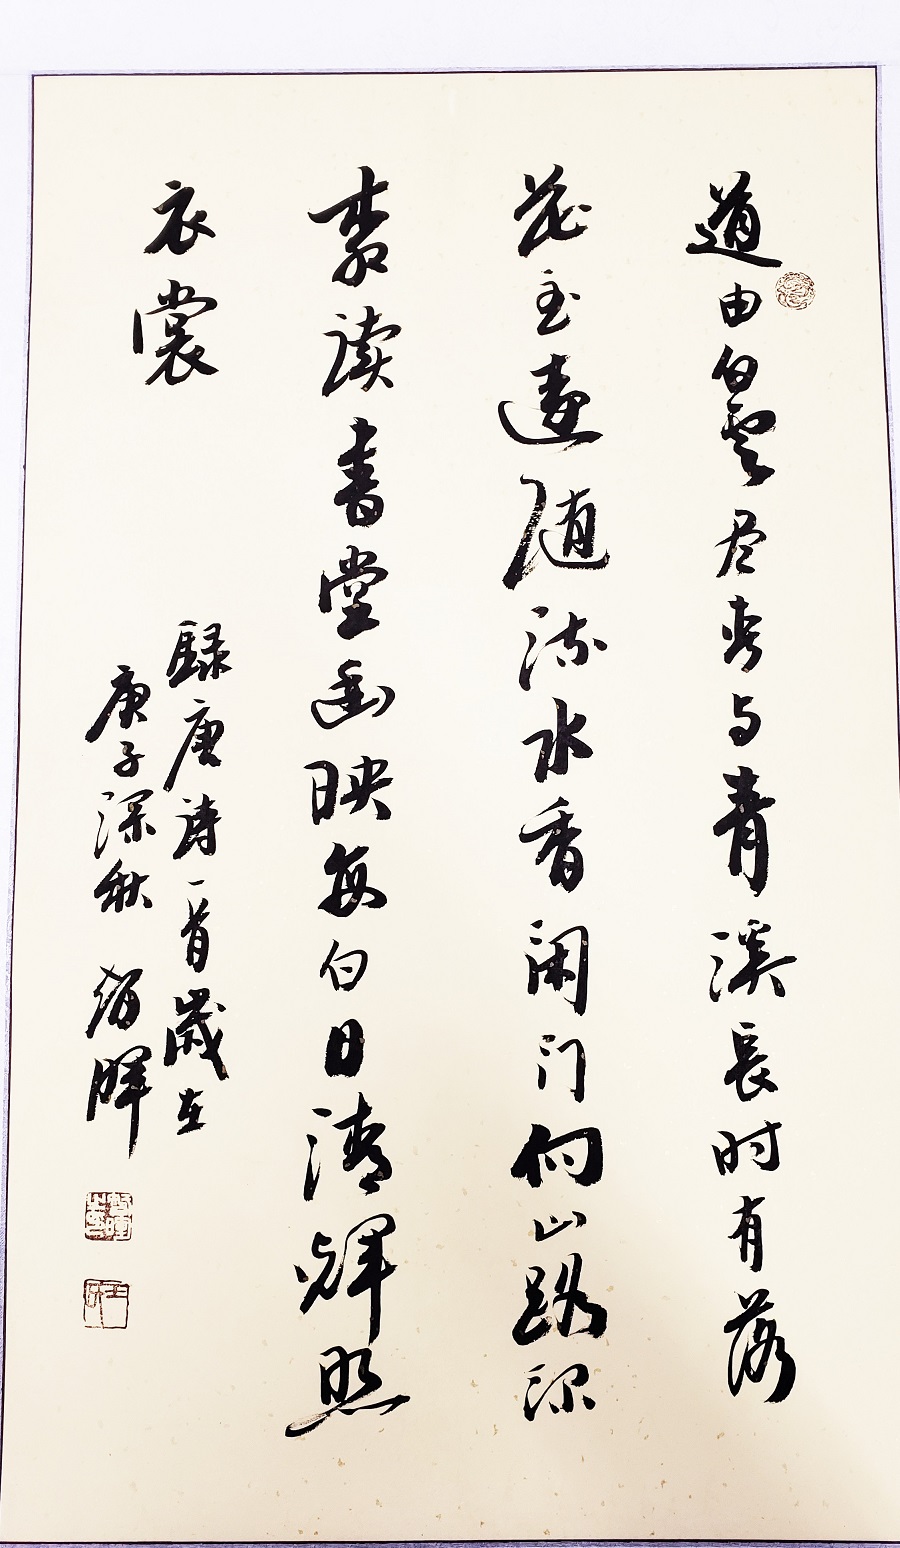 道由白雲尽春与青溪長时有落
花至遠随流水香闲门向山路深
柳读書堂幽映每白日清輝照
衣裳
録唐诗一首歲在
庚子深秋 暉